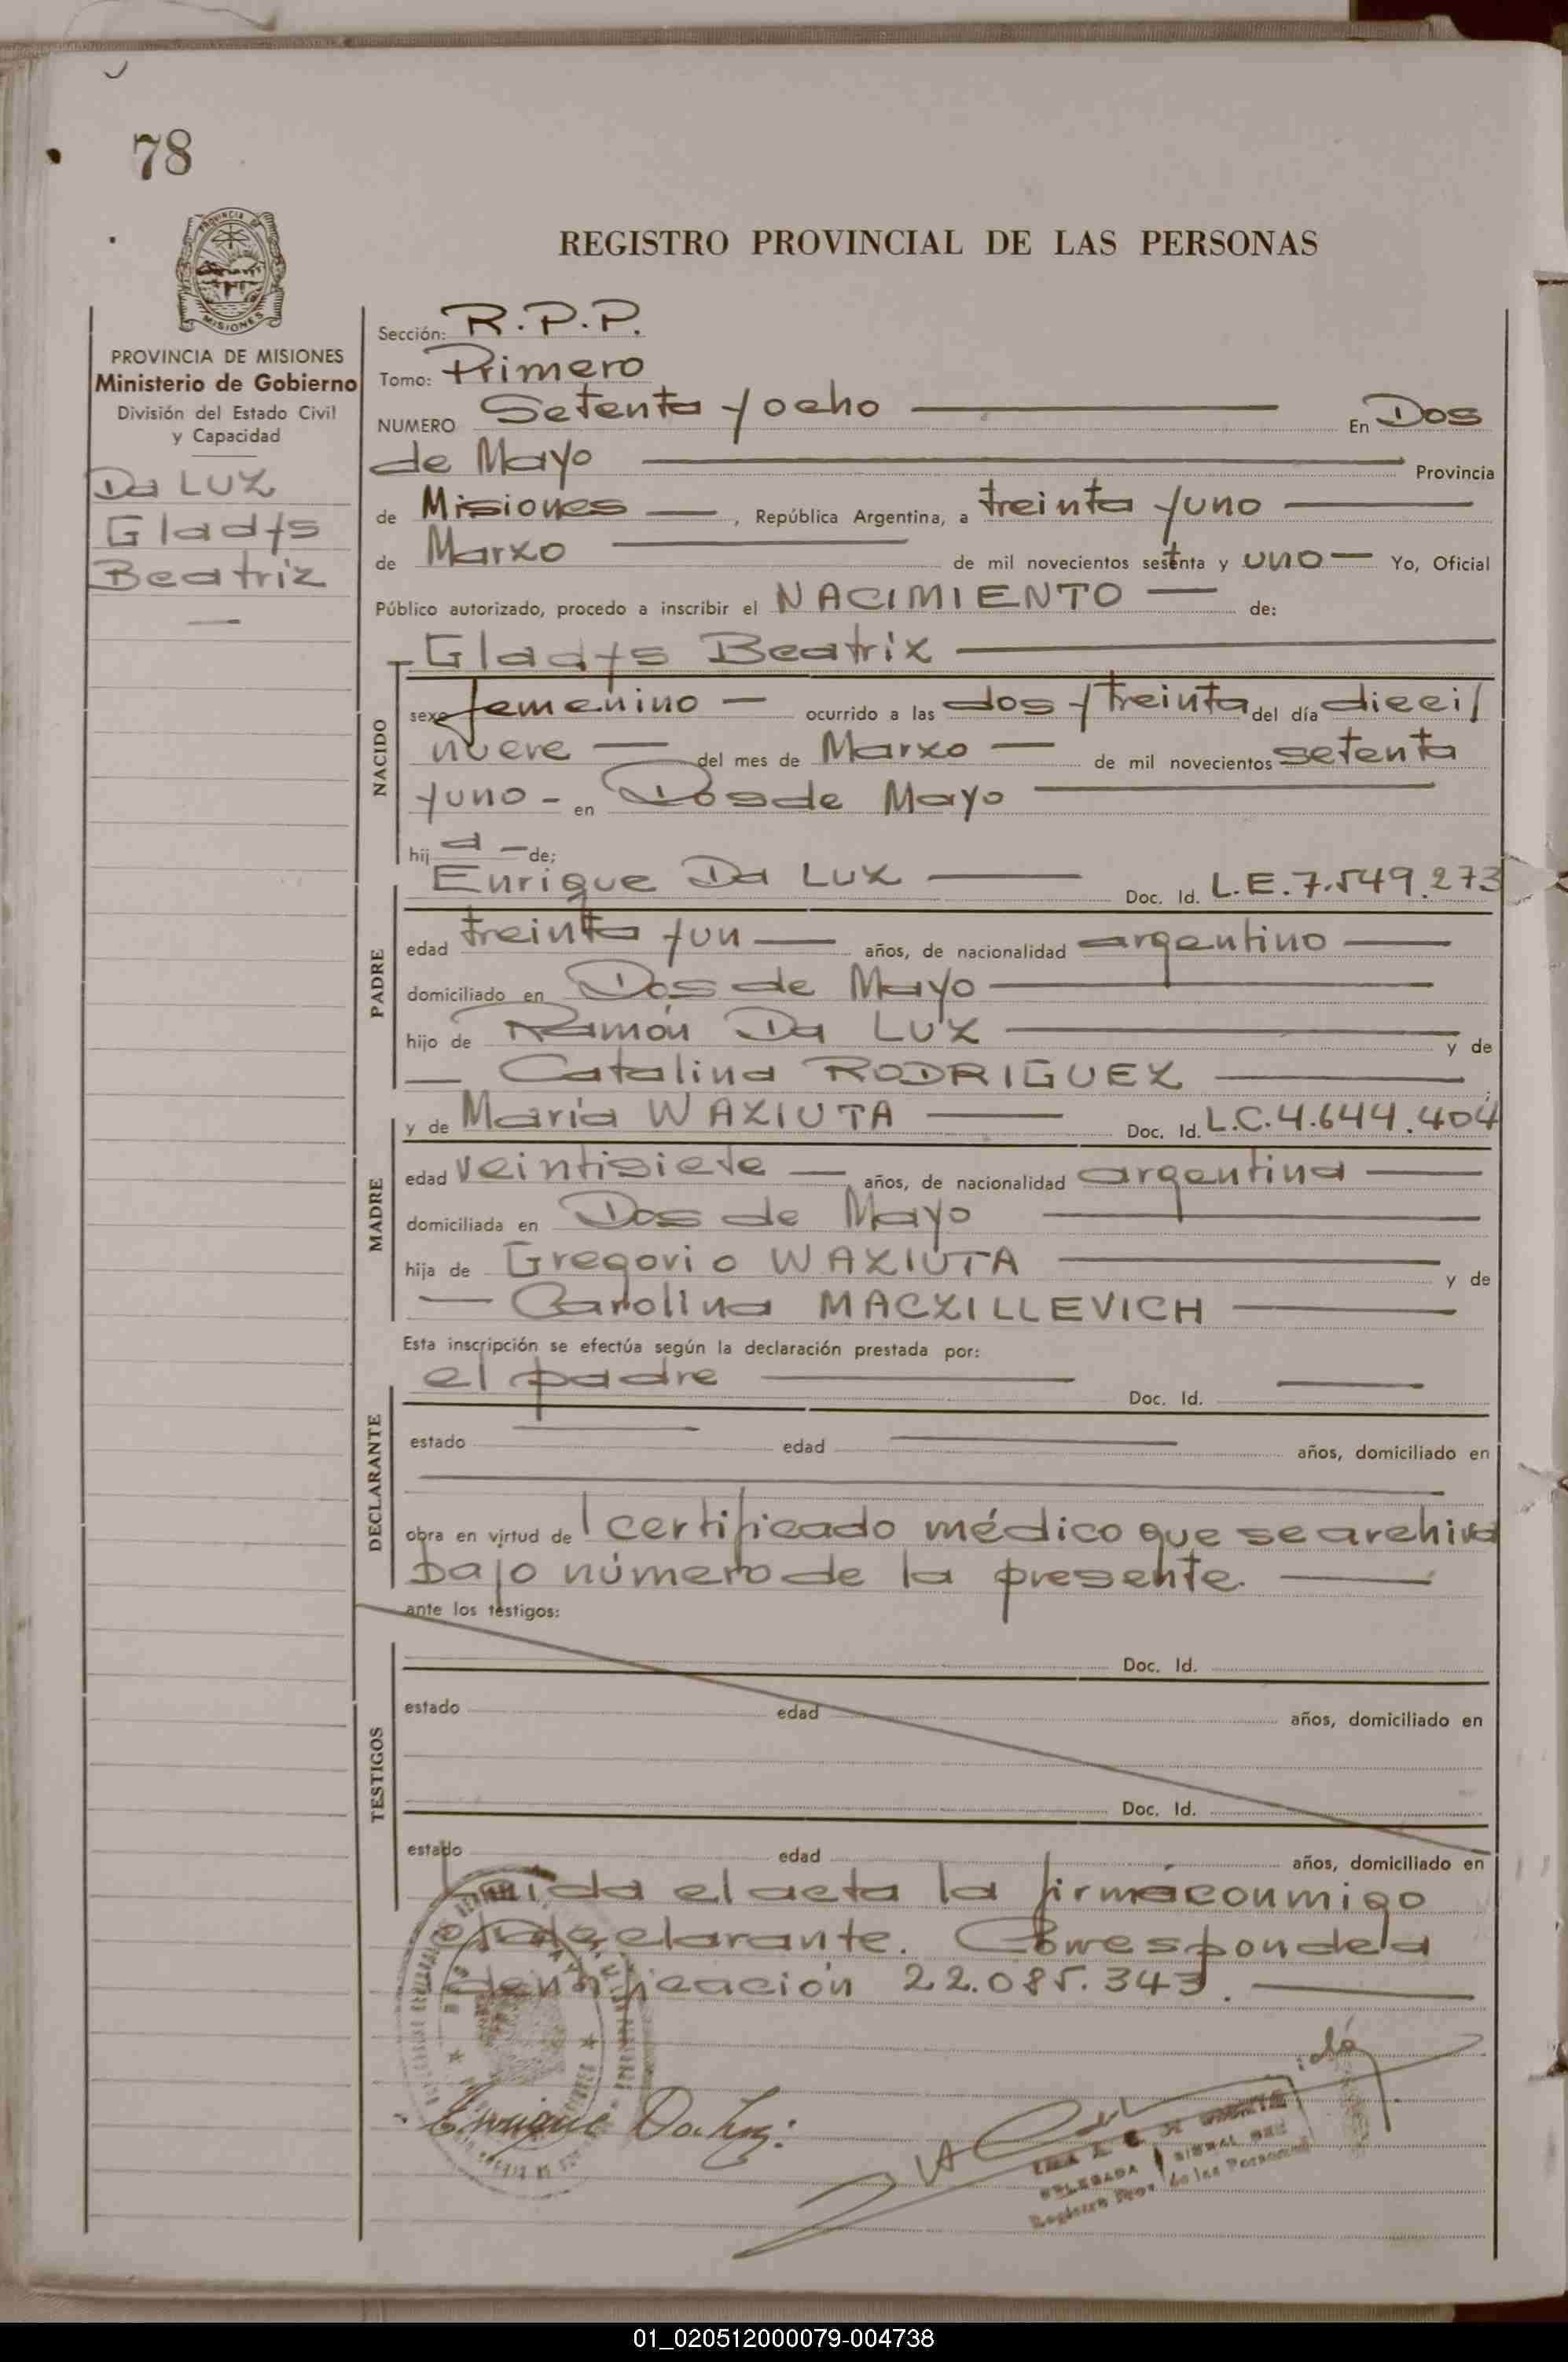 78
PROVINCIA DE
MISIONES
REGISTRO PROVINCIAL DE LAS PERSONAS
PROVINCIA DE MISIONES
Ministerio de Gobierno
División del Estado Civil
y Capacidad
Da LUZ
Gladys
Beatriz
Sección: R.P.P.
Tomo: Primero
NUMERO Setenta y ocho En Dos
de Mayo Provincia
de Misiones, República Argentina, a treinta y uno
de Marzo de mil novecientos setenta y uno Yo, Oficial
Público autorizado, procedo a inscribir el NACIMIENTO de:
Gladys Beatriz
NACIDO
sexo femenino ocurrido a las dos y treinta del día dieci
nueve del mes de Marzo de mil novecientos setenta
y uno - en Dos de Mayo
hij a de:
PADRE
Enrique Da Luz Doc. Id. L.E. 7.549.273
edad treinta y un años, de nacionalidad argentino
domiciliado en Dos de Mayo
hijo de Ramón Da LUZ y de
Catalina RODRIGUEZ
MADRE
y de María WAZIUTA Doc. Id. L.C. 4.644.404
edad veintisiete años, de nacionalidad argentina
domiciliada en Dos de Mayo
hija de Gregorio WAZIUTA y de
Carolina MACZILLEVICH
Esta inscripción se efectúa según la declaración prestada por:
DECLARANTE
el padre Doc. Id.
estado edad años, domiciliado en
obra en virtud de l certificado médico que se archiva
bajo número de la presente.
ante los testigos:
TESTIGOS
Doc. Id.
estado edad años, domiciliado en
Doc. Id.
estado edad años, domiciliado en
Leída el acta la firma conmigo
el declarante. Corresponde a
identificación 22.085.343.
Enrique Da Luz
DELEGADA
Registro Prov. de las Personas
01_020512000079-004738